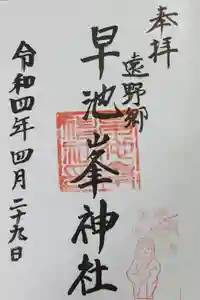 奉拝
遠野郷
早池峯神社
令和四年四月二十九日